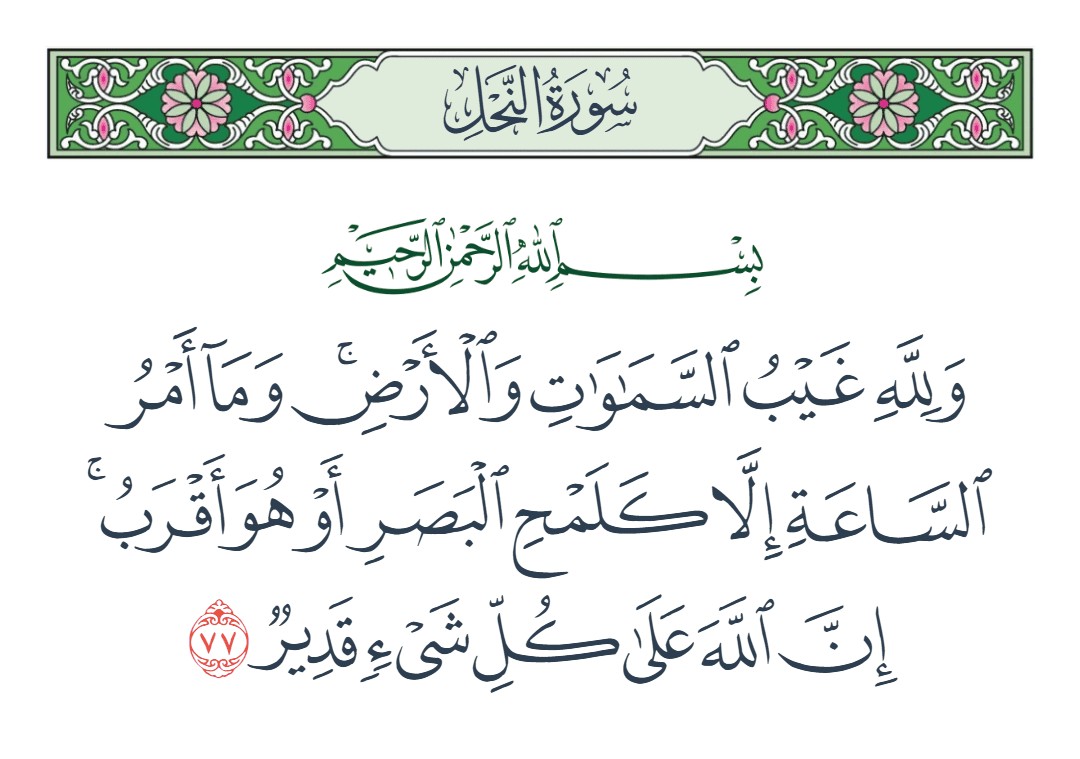 سُورَةُ النَّحْلِ
بِسْمِ ٱللَّهِ ٱلرَّحْمَٰنِ ٱلرَّحِيمِ
وَلِلَّهِ غَيْبُ ٱلسَّمَٰوَٰتِ وَٱلْأَرْضِ ۚ وَمَآ أَمْرُ
ٱلسَّاعَةِ إِلَّا كَلَمْحِ ٱلْبَصَرِ أَوْ هُوَ أَقْرَبُ ۚ
إِنَّ ٱللَّهَ عَلَىٰ كُلِّ شَىْءٍ قَدِيرٌ ٧٧